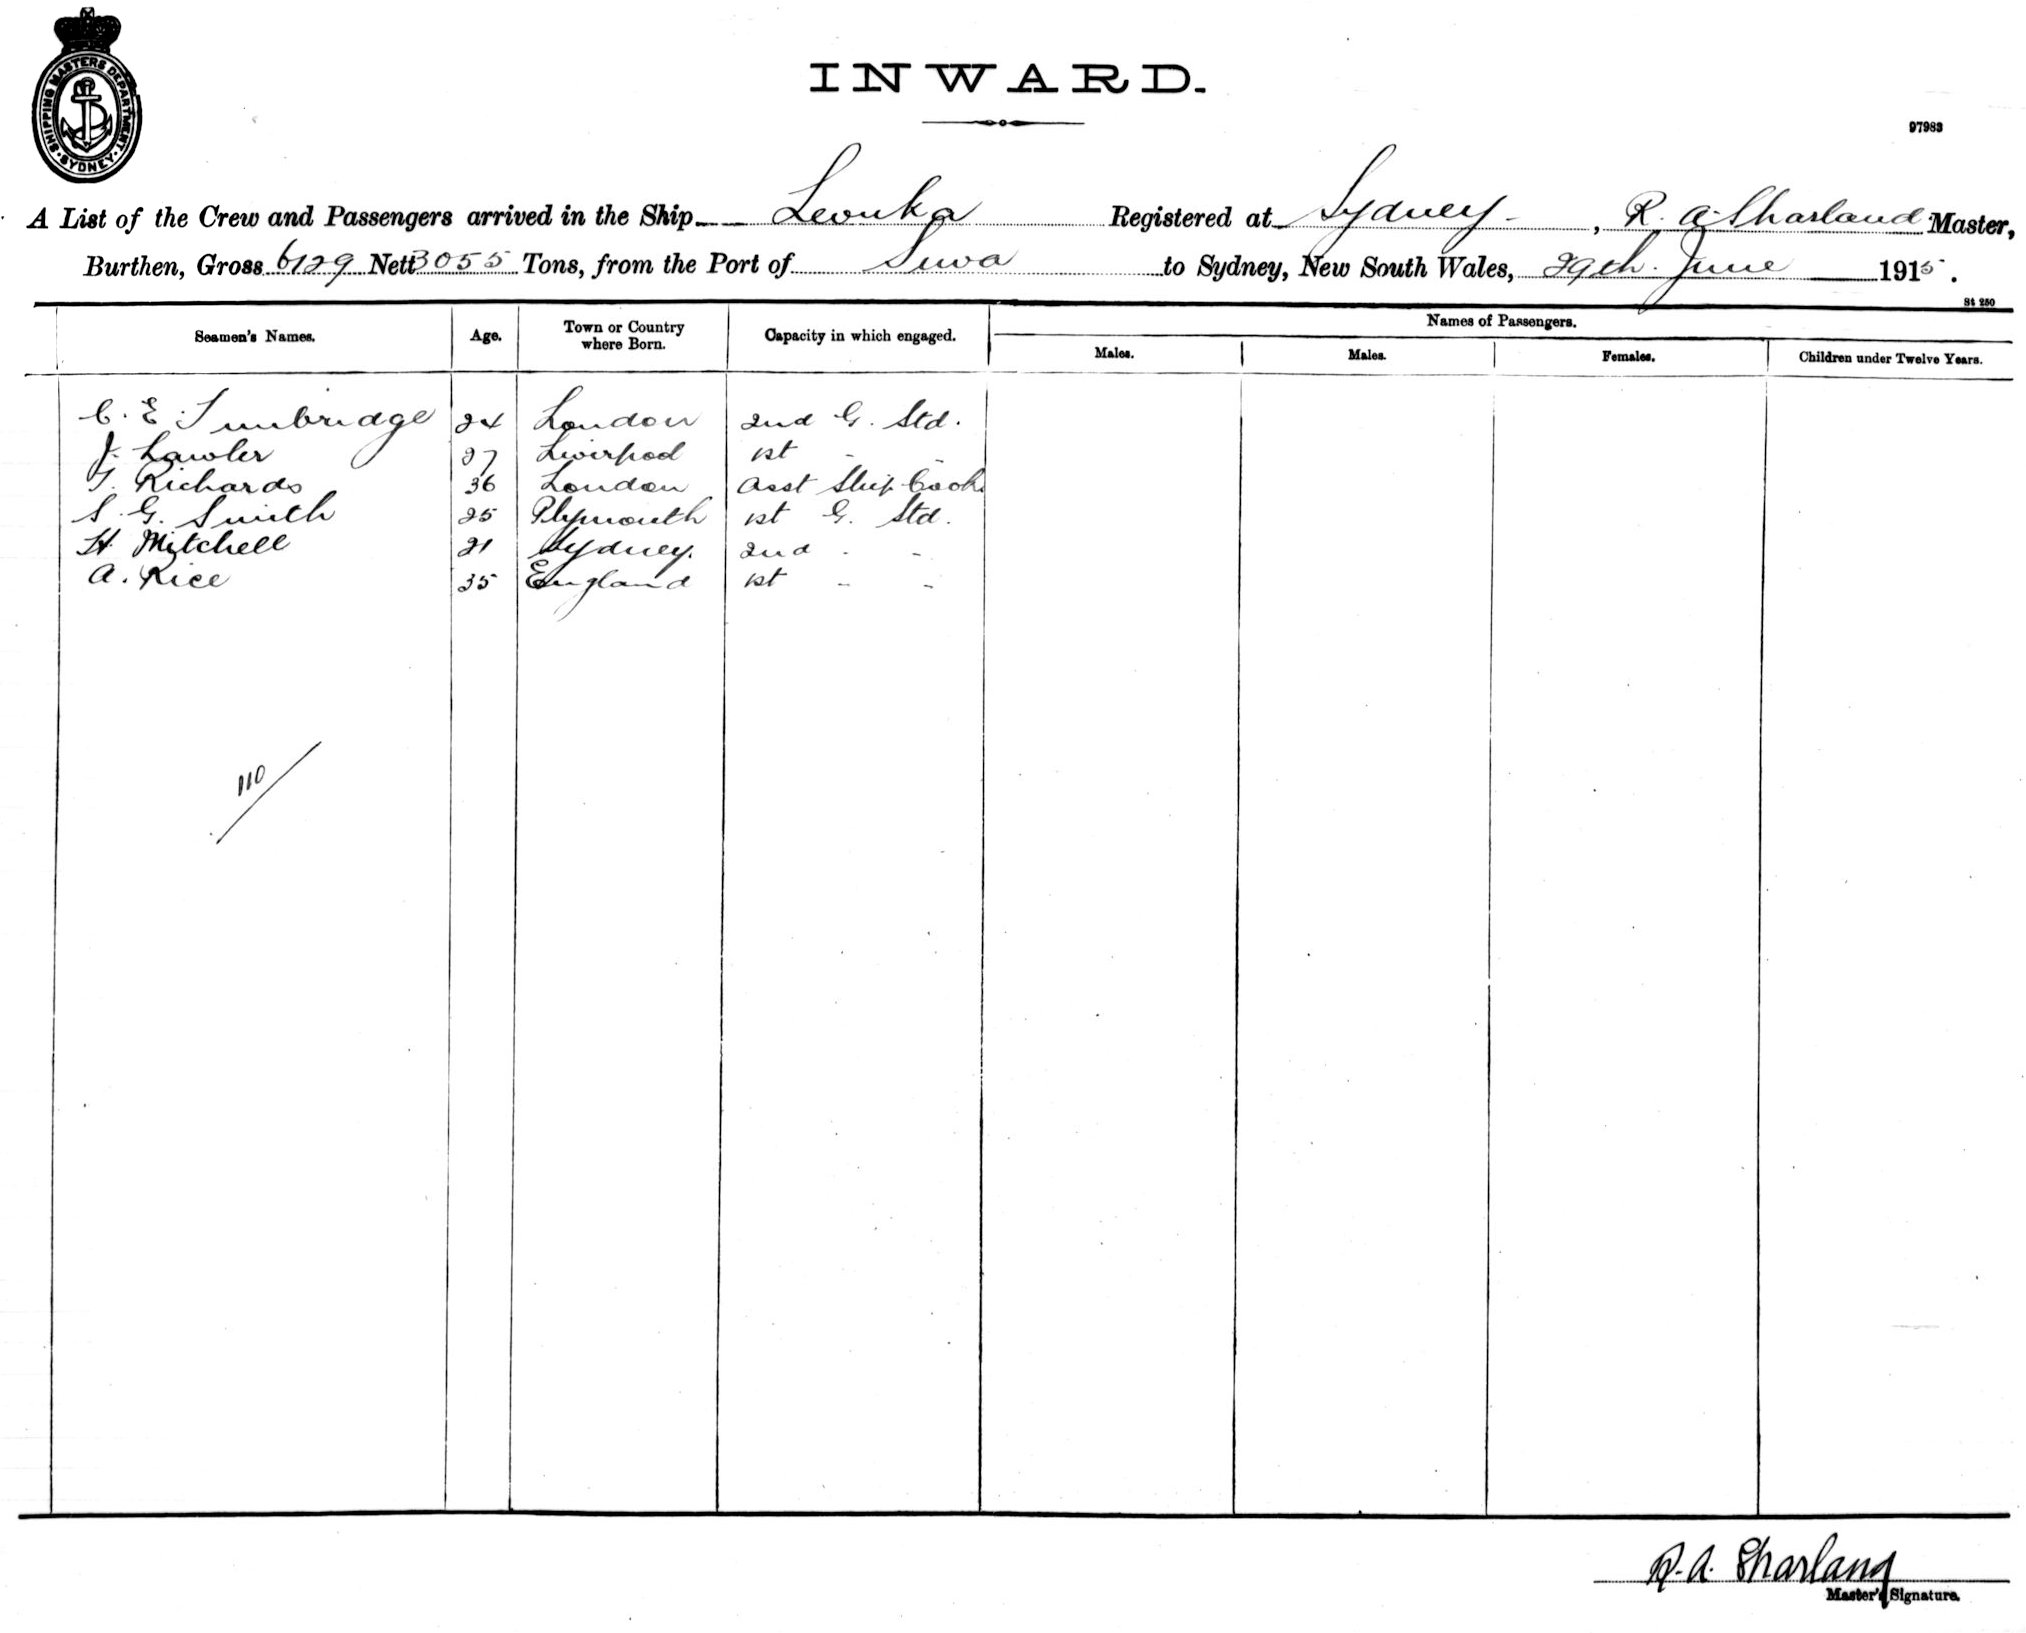 SHIPPING MASTERS DEPARTMENT · SYDNEY ·
INWARD.
97983
A List of the Crew and Passengers arrived in the Ship Levuka Registered at Sydney, R. A. Sharland Master,
Burthen, Gross 6129 Nett 3055 Tons, from the Port of Suva to Sydney, New South Wales, 29th June 1915.
St 250
Seamen's Names. Age. Town or Country where Born. Capacity in which engaged. Names of Passengers.
Males. Males. Females. Children under Twelve Years.
C. E. Timbridge 24 London 2nd G. Std.
J. Lawler 27 Liverpool 1st " "
T. Richards 36 London Asst Ship Cook
S. G. Smith 25 Plymouth 1st G. Std.
H. Mitchell 21 Sydney. 2nd " "
A. Rice 35 England 1st " "
110
R. A. Sharland
Master's Signature.